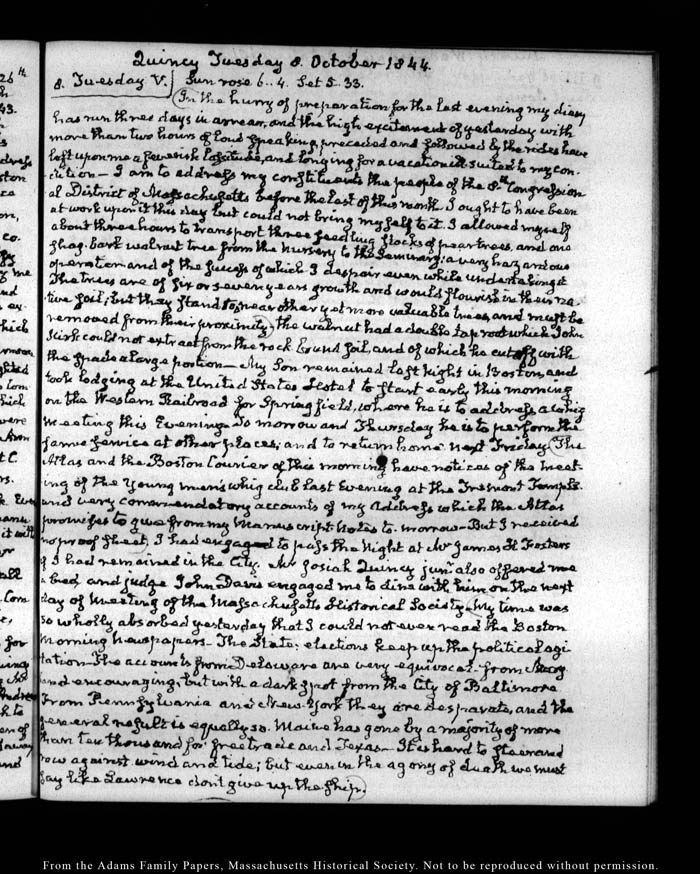 Quincy Tuesday 8. October 1844.
8. Tuesday V. Sun rose 6..4. Set 5..33.
In the hurry of preparation for the last evening my diary
has run three days in arrear, and the high excitement of yesterday with
more than two hours of loud speaking, preceded and followed by the rides have
left upon me a feverish lassitude, and longing for a vacation ill suited to my con-
dition — I am to address my constituents the people of the 8th Congression
al District of Massachusetts before the last of this month. I ought to have been
at work upon it this day but could not bring myself to it. I allowed myself
about three hours to transport three seedling stocks of pear trees, and one
shag-bark walnut tree from the nursery to the Seminary; a very hazardous
operation and of the success of which I despair even while undertaking it
The trees are of six or seven years growth and would flourish in their na-
tive soil; but they stand so near other yet more valuable trees, and must be
removed from their proximity, the walnut had a double tap root which John
Kirk could not extract from the rock bound soil, and of which he cut off with
the spade a large portion — My Son remained last Night in Boston, and
took lodging at the United States Hotel to start early this morning
on the Western Railroad for Springfield, where he is to address a whig
meeting this Evening. To morrow and Thursday he is to perform the
same service at other places; and to return home next Friday. The
Atlas and the Boston Courier of this morning have notices of the meet-
ing of the Young men's whig club last Evening at the Tremont Temple.
and very commendatory accounts of my Address which the Atlas
promises to give from my Manuscript Notes to-morrow — But I received
no proof sheet, I had engaged to pass the Night at Mr James H Fosters
if I had remained in the City. Mr Josiah Quincy junr. also offered me
a bed, and judge John Davis engaged me to dine with him on the next
day of meeting of the Massachusetts Historical Society. My time was
so wholly absorbed yesterday that I could not even read the Boston
Morning Newspapers — The State elections keep up the political agi-
tation. The accounts from Delaware are very equivocal. from
and encouraging, but with a dark spot from the City of Baltimore
From Pennsylvania and New-York they are desperate, and the
general result is equally so. Maine has gone by a majority of more
than ten thousand for free trade and Texas — It is hard to steer and
row against wind and tide; but even in the agony of death we must
say like Lawrence dont give up the ship.
From the Adams Family Papers, Massachusetts Historical Society. Not to be reproduced without permission.